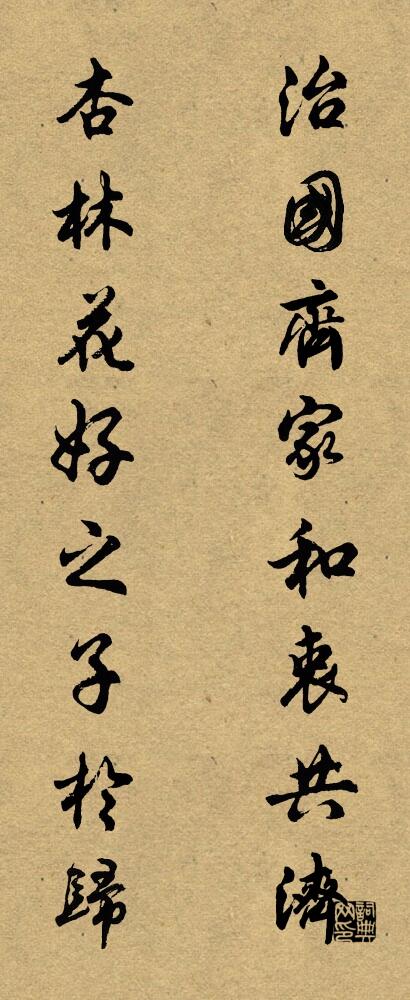 治國齊家和衷共濟
杏林花好之子於歸